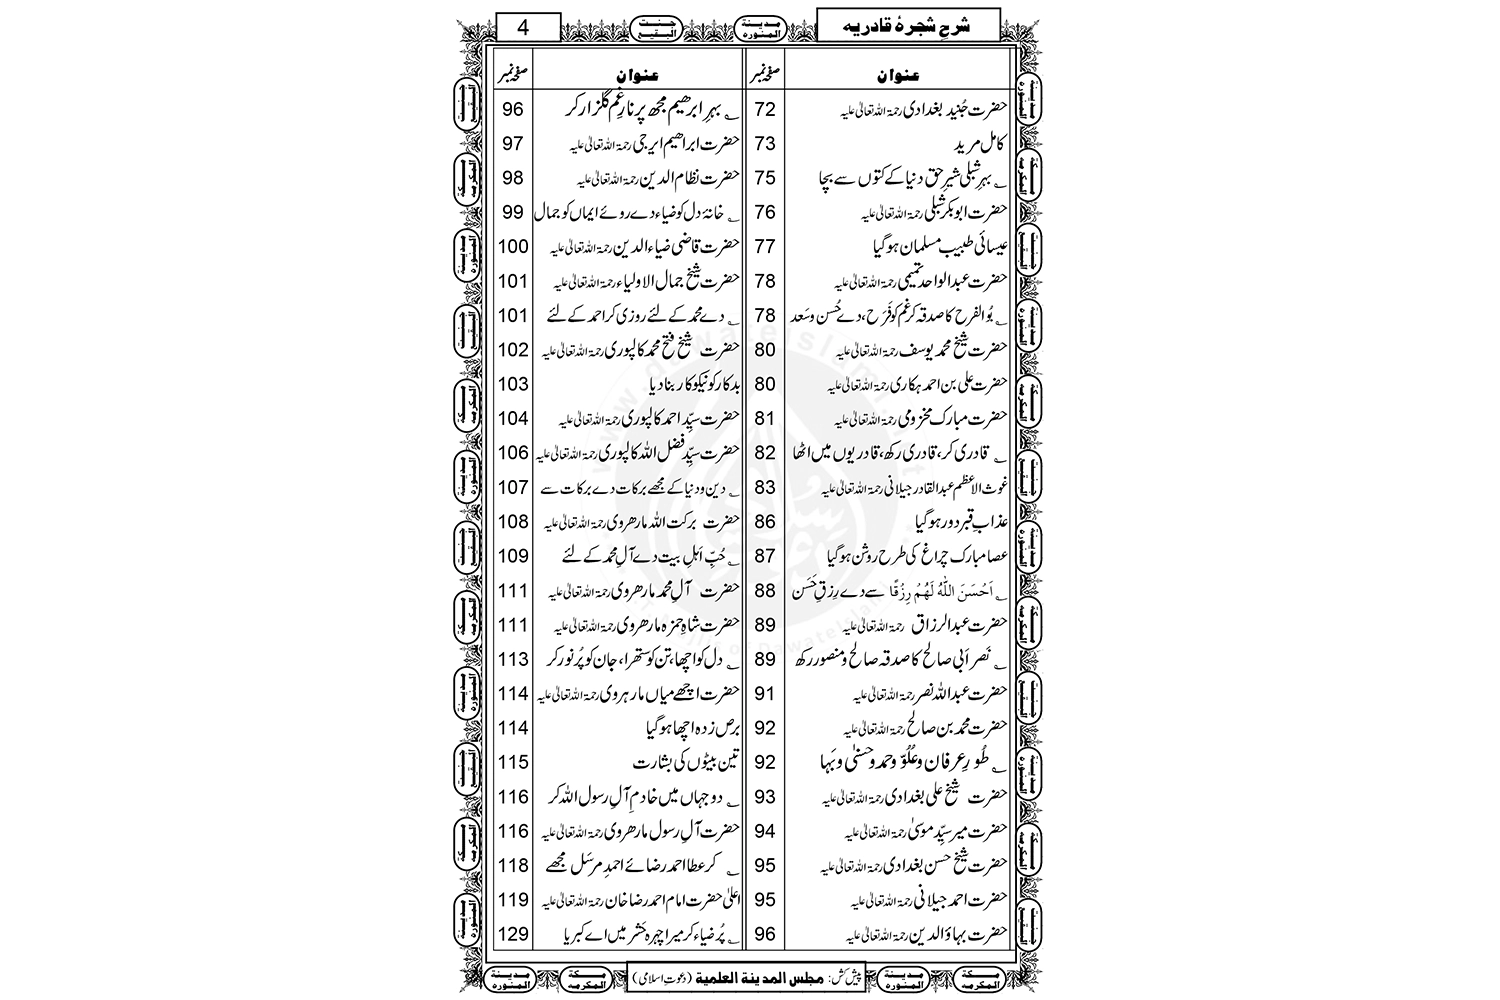 شرحِ شجرۂ قادریہ
4
عنوان صفحہ نمبر
حضرت جُنید بغدادی رحمۃ اللہ تعالیٰ علیہ 72
کامل مرید 73
؎ بہرِ شبلی شیرِ حق دنیا کے کتوں سے بچا 75
حضرت ابوبکر شبلی رحمۃ اللہ تعالیٰ علیہ 76
عیسائی طبیب مسلمان ہوگیا 77
حضرت عبدالواحد تمیمی رحمۃ اللہ تعالیٰ علیہ 78
؎ بُوالفرح کا صدقہ کر غم کو فَرَح، دے حُسن وسَعد 78
حضرت شیخ محمد یوسف رحمۃ اللہ تعالیٰ علیہ 80
حضرت علی بن احمد ہکاری رحمۃ اللہ تعالیٰ علیہ 80
حضرت مبارک مخزومی رحمۃ اللہ تعالیٰ علیہ 81
؎ قادری کر، قادری رکھ، قادریوں میں اٹھا 82
غوث الاعظم عبدالقادر جیلانی رحمۃ اللہ تعالیٰ علیہ 83
عذابِ قبر دور ہوگیا 86
عصا مبارک چراغ کی طرح روشن ہوگیا 87
؎ اَحْسَنَ اللہُ لَهُمْ رِزْقًا سے دے رِزقِ حَسَن 88
حضرت عبدالرزاق رحمۃ اللہ تعالیٰ علیہ 89
؎ نَصر اَبی صالح کا صدقہ صالح و منصور رکھ 89
حضرت عبداللہ نصر رحمۃ اللہ تعالیٰ علیہ 91
حضرت محمد بن صالح رحمۃ اللہ تعالیٰ علیہ 92
؎ طُورِ عرفان و عُلُوّ و حمد و حسنیٰ و بَہا 92
حضرت شیخ علی بغدادی رحمۃ اللہ تعالیٰ علیہ 93
حضرت میر سیّد موسیٰ رحمۃ اللہ تعالیٰ علیہ 94
حضرت شیخ حسن بغدادی رحمۃ اللہ تعالیٰ علیہ 95
حضرت احمد جیلانی رحمۃ اللہ تعالیٰ علیہ 95
حضرت بہاؤالدین رحمۃ اللہ تعالیٰ علیہ 96
عنوان صفحہ نمبر
؎ بہرِ ابراھیم مجھ پر نارِ غم گلزار کر 96
حضرت ابراھیم ایرجی رحمۃ اللہ تعالیٰ علیہ 97
حضرت نظام الدین رحمۃ اللہ تعالیٰ علیہ 98
؎ خانۂ دل کو ضیاء دے روئے ایماں کو جمال 99
حضرت قاضی ضیاء الدین رحمۃ اللہ تعالیٰ علیہ 100
حضرت شیخ جمال الاولیاء رحمۃ اللہ تعالیٰ علیہ 101
؎ دے محمد کے لئے روزی کر احمد کے لئے 101
حضرت شیخ فتح محمد کالپوری رحمۃ اللہ تعالیٰ علیہ 102
بدکار کو نیکوکار بنادیا 103
حضرت سیّد احمد کالپوری رحمۃ اللہ تعالیٰ علیہ 104
حضرت سیّد فضل اللہ کالپوری رحمۃ اللہ تعالیٰ علیہ 106
؎ دین و دنیا کے مجھے برکات دے برکات سے 107
حضرت برکت اللہ مارھروی رحمۃ اللہ تعالیٰ علیہ 108
؎ حُبِّ اہلِ بیت دے آلِ محمد کے لئے 109
حضرت آلِ محمد مارھروی رحمۃ اللہ تعالیٰ علیہ 111
حضرت شاہ حمزہ مارھروی رحمۃ اللہ تعالیٰ علیہ 111
؎ دل کو اچھا، تن کو ستھرا، جان کو پُرنور کر 113
حضرت اچھے میاں مارہروی رحمۃ اللہ تعالیٰ علیہ 114
برص زدہ اچھا ہوگیا 114
تین بیٹوں کی بشارت 115
؎ دو جہاں میں خادمِ آلِ رسول اللہ کر 116
حضرت آلِ رسول مارھروی رحمۃ اللہ تعالیٰ علیہ 116
؎ کر عطا احمد رضائے احمدِ مرسَل مجھے 118
اعلیٰ حضرت امام احمد رضا خان رحمۃ اللہ تعالیٰ علیہ 119
؎ پُر ضیاء کر میرا چہرہ حَشر میں اے کبریا 129
پیش کش: مجلس المدینۃ العلمیۃ (دعوتِ اسلامی)